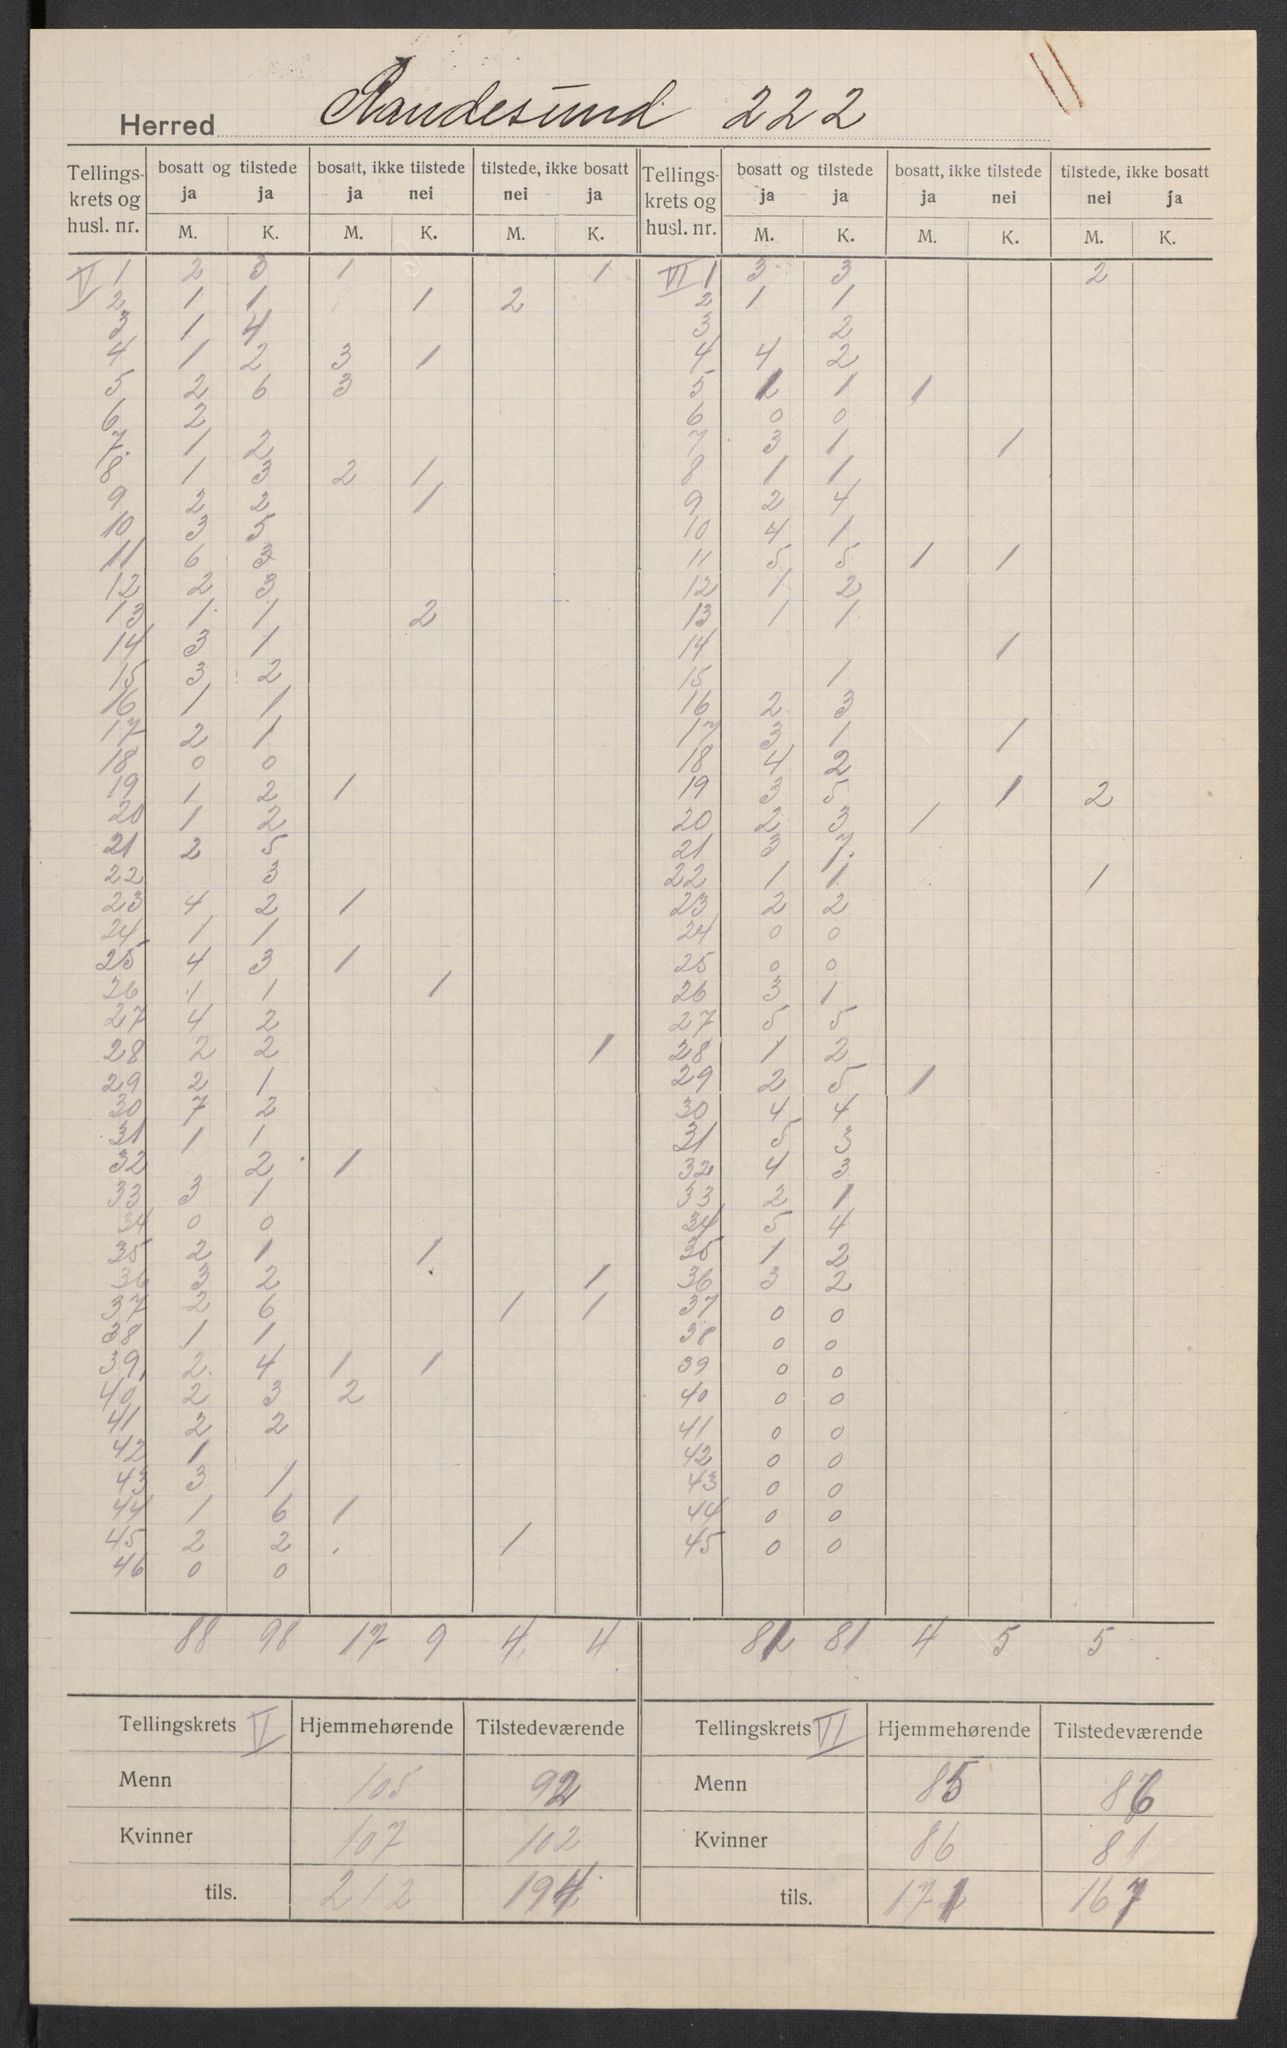 Herred Randesund 222
Tellings- bosatt og tilstede bosatt, ikke tilstede tilstede, ikke bosatt Tellings- bosatt og tilstede bosatt, ikke tilstede tilstede, ikke bosatt
krets og ja ja ja nei nei ja krets og ja ja ja nei nei ja
husl. nr. M. K. M. K. M. K. husl. nr. M. K. M. K. M. K.
V 1 2 3 1 1 VI 1 3 3 2
2 1 1 1 2 2 1 1
3 1 4 3 2
4 1 2 3 1 4 4 2
5 2 6 3 5 1 1 1
6 2 6 0 0
7 1 2 7 3 1 1
8 1 3 2 1 8 1 1
9 2 2 1 9 2 4
10 3 5 10 4 1
11 6 3 11 5 5 1 1
12 2 3 12 1 2
13 1 1 2 13 1 1
14 3 1 14 1
15 3 2 15 1
16 1 1 16 2 3
17 2 1 17 3 1 1
18 0 0 18 4 2
19 1 2 1 19 3 5 1 2
20 1 2 20 2 3 1
21 2 5 21 3 7
22 3 22 1 1 1
23 4 2 1 23 2 2
24 1 1 24 0 0
25 4 3 1 25 0 0
26 1 1 1 26 3 1
27 4 2 27 5 5
28 2 2 1 28 1 2
29 2 1 29 2 5 1
30 7 2 30 4 4
31 1 1 31 5 3
32 2 1 32 4 3
33 3 1 33 2 1
34 0 0 34 5 4
35 2 1 1 35 1 2
36 3 2 1 36 3 2
37 2 6 1 1 37 0 0
38 1 1 38 0 0
39 2 4 1 1 39 0 0
40 2 3 2 40 0 0
41 2 2 41 0 0
42 1 42 0 0
43 3 1 43 0 0
44 1 6 1 44 0 0
45 2 2 1 45 0 0
46 0 0
88 98 17 9 4 4 81 81 4 5 5
Tellingskrets V Hjemmehørende Tilstedeværende Tellingskrets VI Hjemmehørende Tilstedeværende
Menn 105 92 Menn 85 86
Kvinner 107 102 Kvinner 86 81
tils. 212 194 tils. 171 167